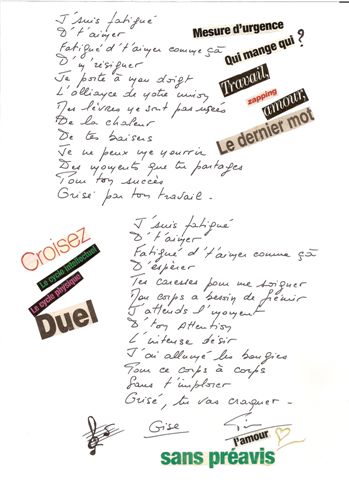 J'suis fatigué
D't'aimer
Fatigué d't'aimer comme çà
D'm'résigner
Je porte à mon doigt
L'alliance de notre union
Mes lèvres ne sont pas usées
De la chaleur
De tes baisers
Je ne peux me nourrir
Des moments que tu partages
Pour ton succès
Grisé par ton travail.
Mesure d'urgence
Qui mange qui ?
Travail,
zapping
amour,
Le dernier mot
Croisez
Le cycle intellectuel
Le cycle physique
Duel
J'suis fatigué
D't'aimer
Fatigué d't'aimer comme çà
D'espérer
Tes caresses pour me soigner
Mon corps a besoin de frémir
J'attends l'moment
D'ton Attention
L'intense désir
J'ai allumé les bougies
Pour ce corps à corps
Sans t'implorer
Grisé, tu vas craquer.
Gise
l'amour
sans préavis